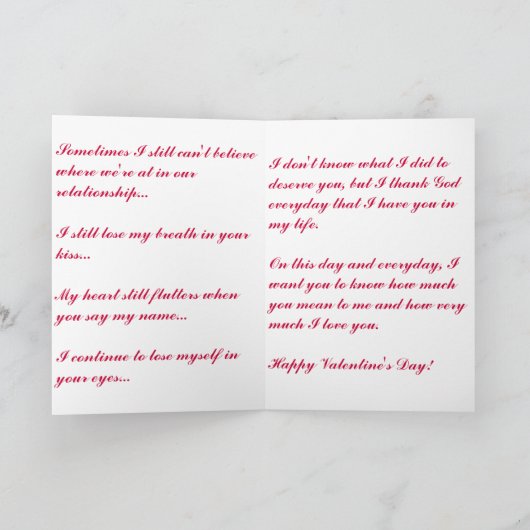 Sometimes I still can't believe
where we're at in our
relationship...
I still lose my breath in your
kiss...
My heart still flutters when
you say my name...
I continue to lose myself in
your eyes...
I don't know what I did to
deserve you, but I thank God
everyday that I have you in
my life.
On this day and everyday, I
want you to know how much
you mean to me and how very
much I love you.
Happy Valentine's Day!